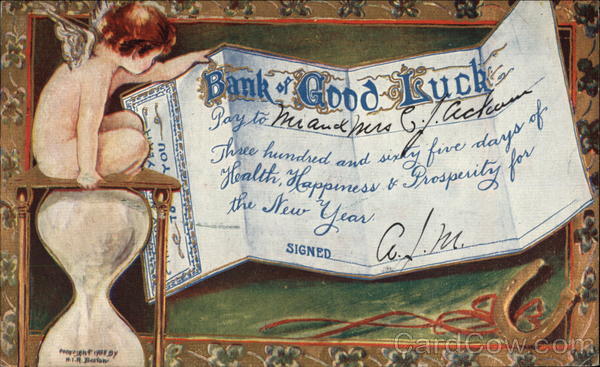 Bank of Good Luck
Pay to Mr and Mrs
Three hundred and sixty five days of
Health, Happiness & Prosperity for
the New Year.
SIGNED A. J. M.
TO YOU
Copyright 1908 By
H.I.R. Boston
CardCow.com